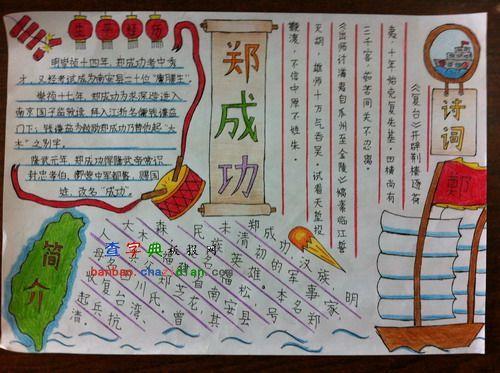 生平经历
明崇祯十四年,郑成功考中秀
才,又经考试成为南安县二十位"廪膳生"。
崇祯十七年,郑成功为求深造,进入
南京国子监就读,拜入江浙名儒钱谦益
门下;钱谦益为鼓励郑成功乃替他起"大
木"之别字。
隆武元年,郑成功得隆武帝赏识
封忠孝伯,御营中军都督,赐国
姓,改名"成功"。
郑成功
诗词
《复台》开辟荆榛逐荷
夷,十年始克复先基。田横尚有
三千客,茹苦间关不忍离。
《出师讨满夷自瓜州至金陵》缟素临江誓
灭胡,雄师十万气吞吴。试看天堑投
鞭渡,不信中原不姓朱。
鄭
简介
郑成功,汉族,明
末清初的军事家,
民族英雄。本名郑
森,
福松,号
大木,
南安县
人,
郑芝龙,其
母
田川氏,曾
恢复台湾、
起兵抗
清。
查字典板报网
banbao.chazidian.com